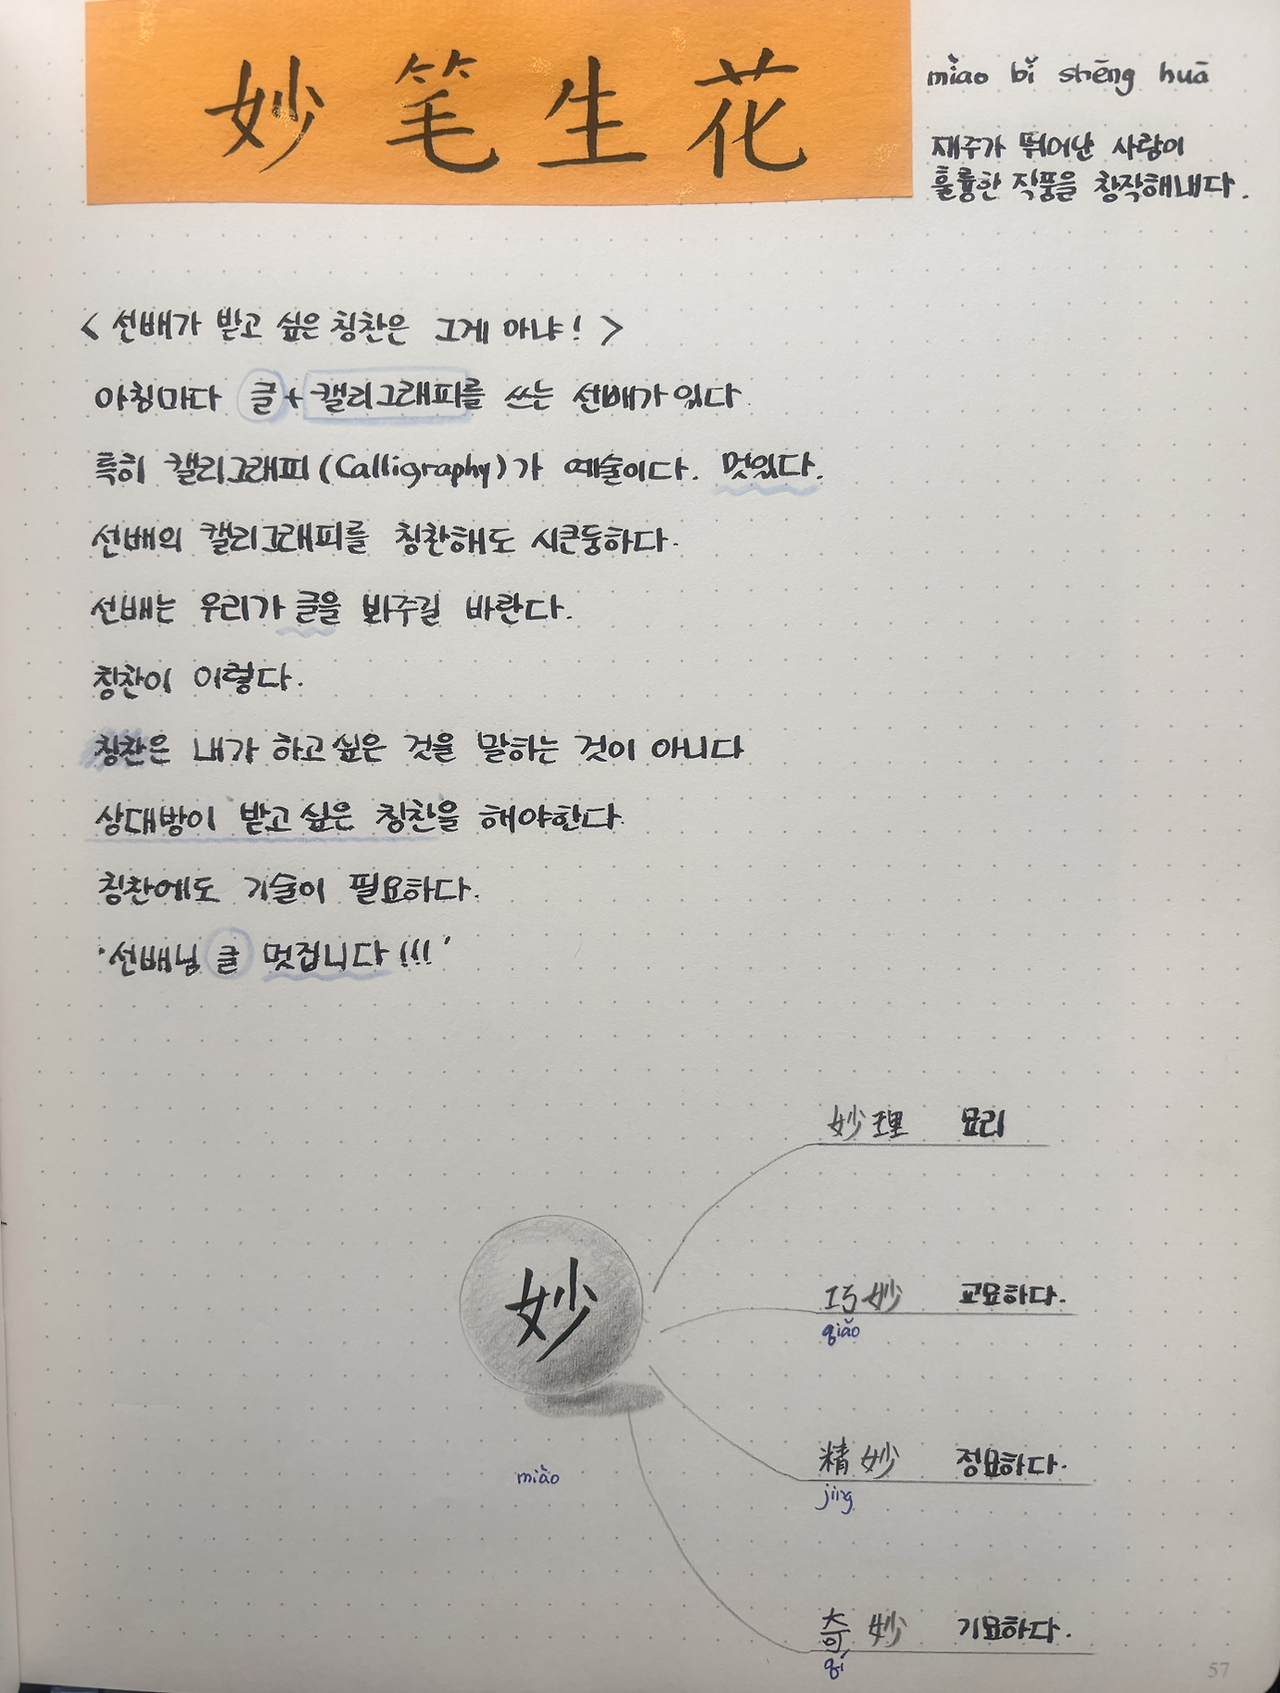 妙笔生花
miào bǐ shēng huā
재주가 뛰어난 사람이
훌륭한 작품을 창작해내다.
< 선배가 받고 싶은 칭찬은 그게 아냐! >
아침마다 글 + 캘리그래피를 쓰는 선배가 있다
특히 캘리그래피 (Calligraphy)가 예술이다. 멋있다.
선배의 캘리그래피를 칭찬해도 시큰둥하다.
선배는 우리가 글을 봐주길 바란다.
칭찬이 이렇다.
칭찬은 내가 하고 싶은 것을 말하는 것이 아니다
상대방이 받고 싶은 칭찬을 해야한다
칭찬에도 기술이 필요하다.
'선배님 글 멋집니다!!!'
妙理 묘리
妙
巧妙 교묘하다.
qiǎo
精妙 정묘하다.
miào
jīng
奇妙 기묘하다.
qí
57